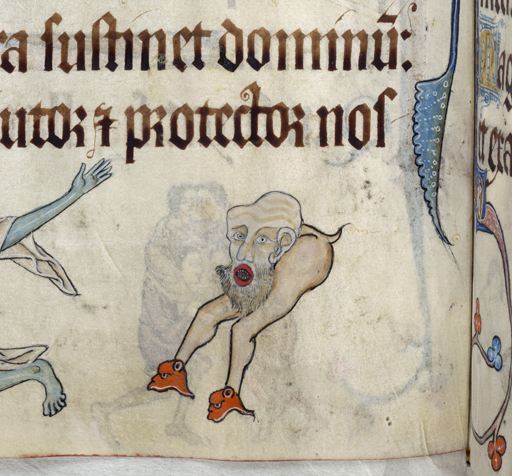 ra sustinet dominū:
utor ⁊ protector nos